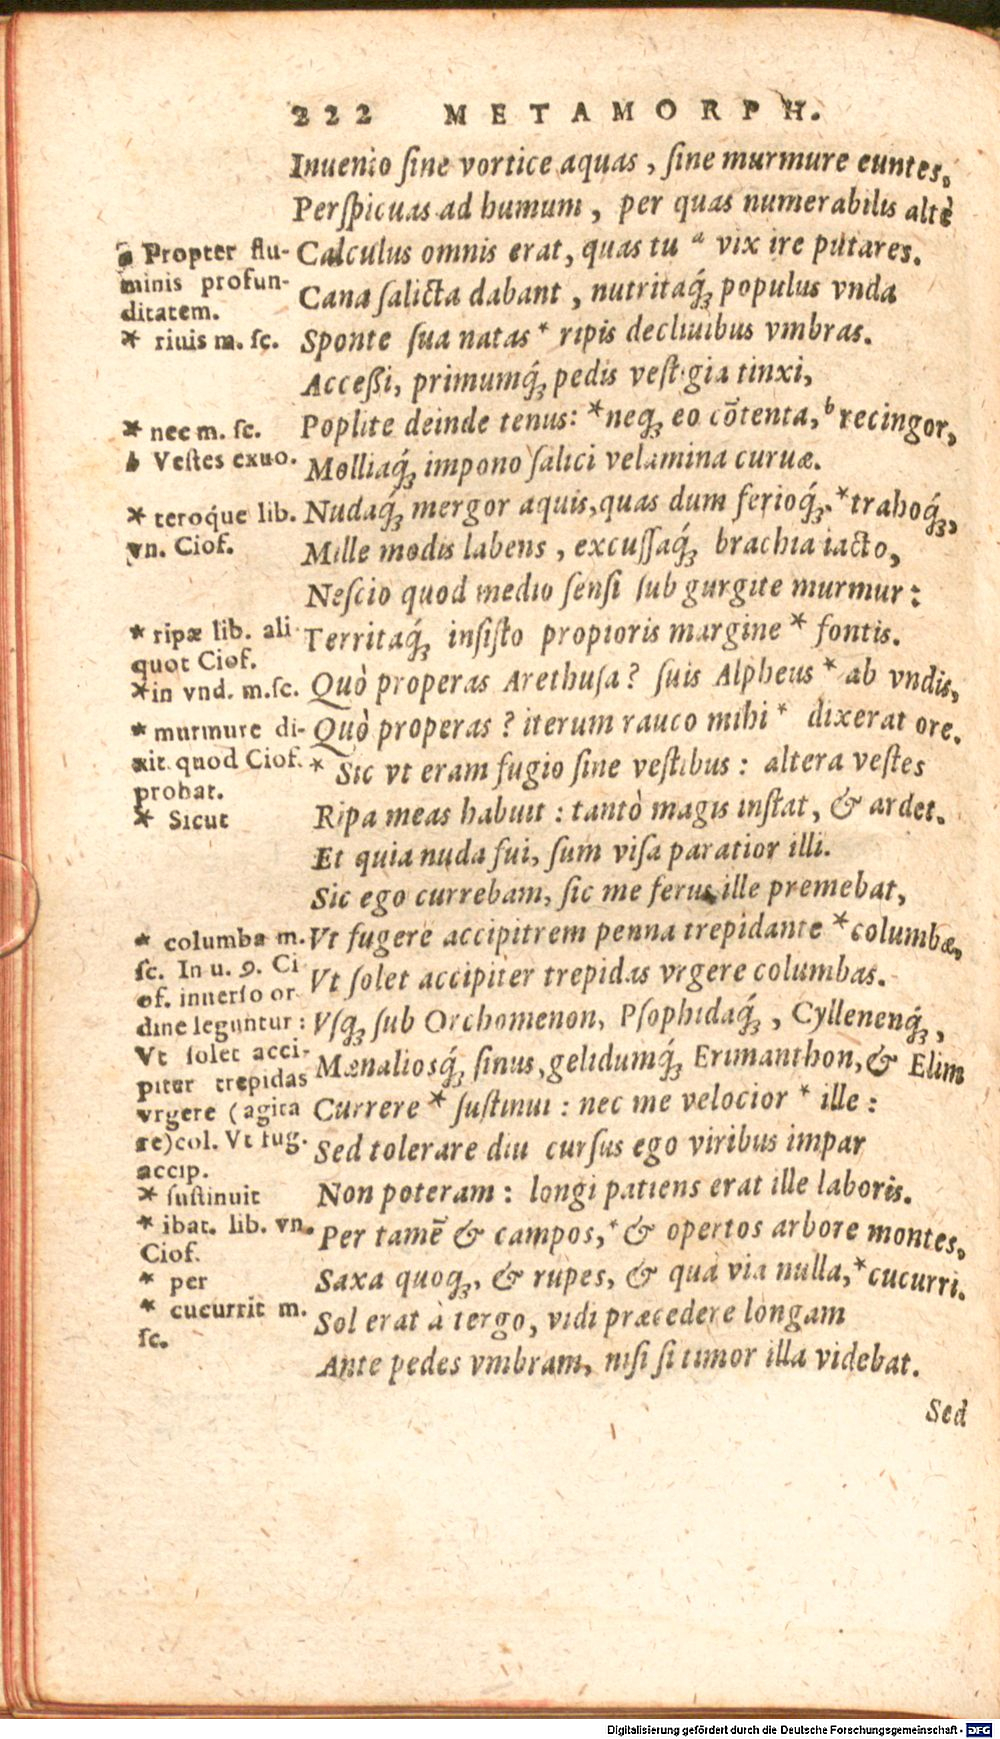 222 METAMORPH.
Inuenio ſine vortice aquas, ſine murmure euntes,
Perſpicuas ad humum, per quas numerabilis altè
Calculus omnis erat, quas tu ᵃ vix ire putares.
Cana ſalicta dabant, nutritaq́ꝫ populus vnda
Sponte ſua natas * ripis decliuibus vmbras.
Acceßi, primumq́ꝫ pedis veſtigia tinxi,
Poplite deinde tenus: *neqꝫ eo cōtenta, ᵇ recingor,
Molliaq́ꝫ impono ſalici velamina curuæ.
Nudaq́ꝫ mergor aquis, quas dum ferioq́ꝫ, *trahoq́ꝫ,
Mille modis labens, excuſſaq́ꝫ brachia iacto,
Neſcio quod medio ſenſi ſub gurgite murmur:
Territaq́ꝫ inſiſto propioris margine * fontis.
Quò properas Arethuſa? ſuis Alpheus * ab vndis,
Quò properas? iterum rauco mihi * dixerat ore.
* Sic vt eram fugio ſine veſtibus: altera veſtes
Ripa meas habuit: tantò magis inſtat, & ardet.
Et quia nuda fui, ſum viſa paratior illi.
Sic ego currebam, ſic me ferus ille premebat,
Vt fugere accipitrem penna trepidante *columbæ,
Vt ſolet accipiter trepidas vrgere columbas.
Vſqꝫ ſub Orchomenon, Pſophidaq́ꝫ, Cyllenenq́ꝫ,
Mænalioſq́ꝫ ſinus, gelidumq́ꝫ Erimanthon, & Elim
Currere * ſuſtinui: nec me velocior * ille:
Sed tolerare diu curſus ego viribus impar
Non poteram: longi patiens erat ille laboris.
Per tamē & campos, * & opertos arbore montes,
Saxa quoqꝫ, & rupes, & quà via nulla, *cucurri.
Sol erat à tergo, vidi præcedere longam
Ante pedes vmbram, niſi ſi timor illa videbat.
Sed
a Propter flu-
minis profun-
ditatem.
* riuis m. ſc.
* nec m. ſc.
b Veſtes exuo.
* teroq́ue lib.
vn. Ciof.
* ripæ lib. ali
quot Ciof.
*in vnd. m.ſc.
* murmure di-
xit quod Ciof.
probat.
* Sicut
* columba m.
ſc. In u. 9. Ci
of. inuerſo or
dine leguntur:
Vt ſolet acci-
piter trepidas
vrgere (agita
re)col. Vt fug.
accip.
* ſuſtinuit
* ibat. lib. vn.
Ciof.
* per
* cucurrit m.
ſc.
Digitalisierung gefördert durch die Deutsche Forschungsgemeinschaft - DFG